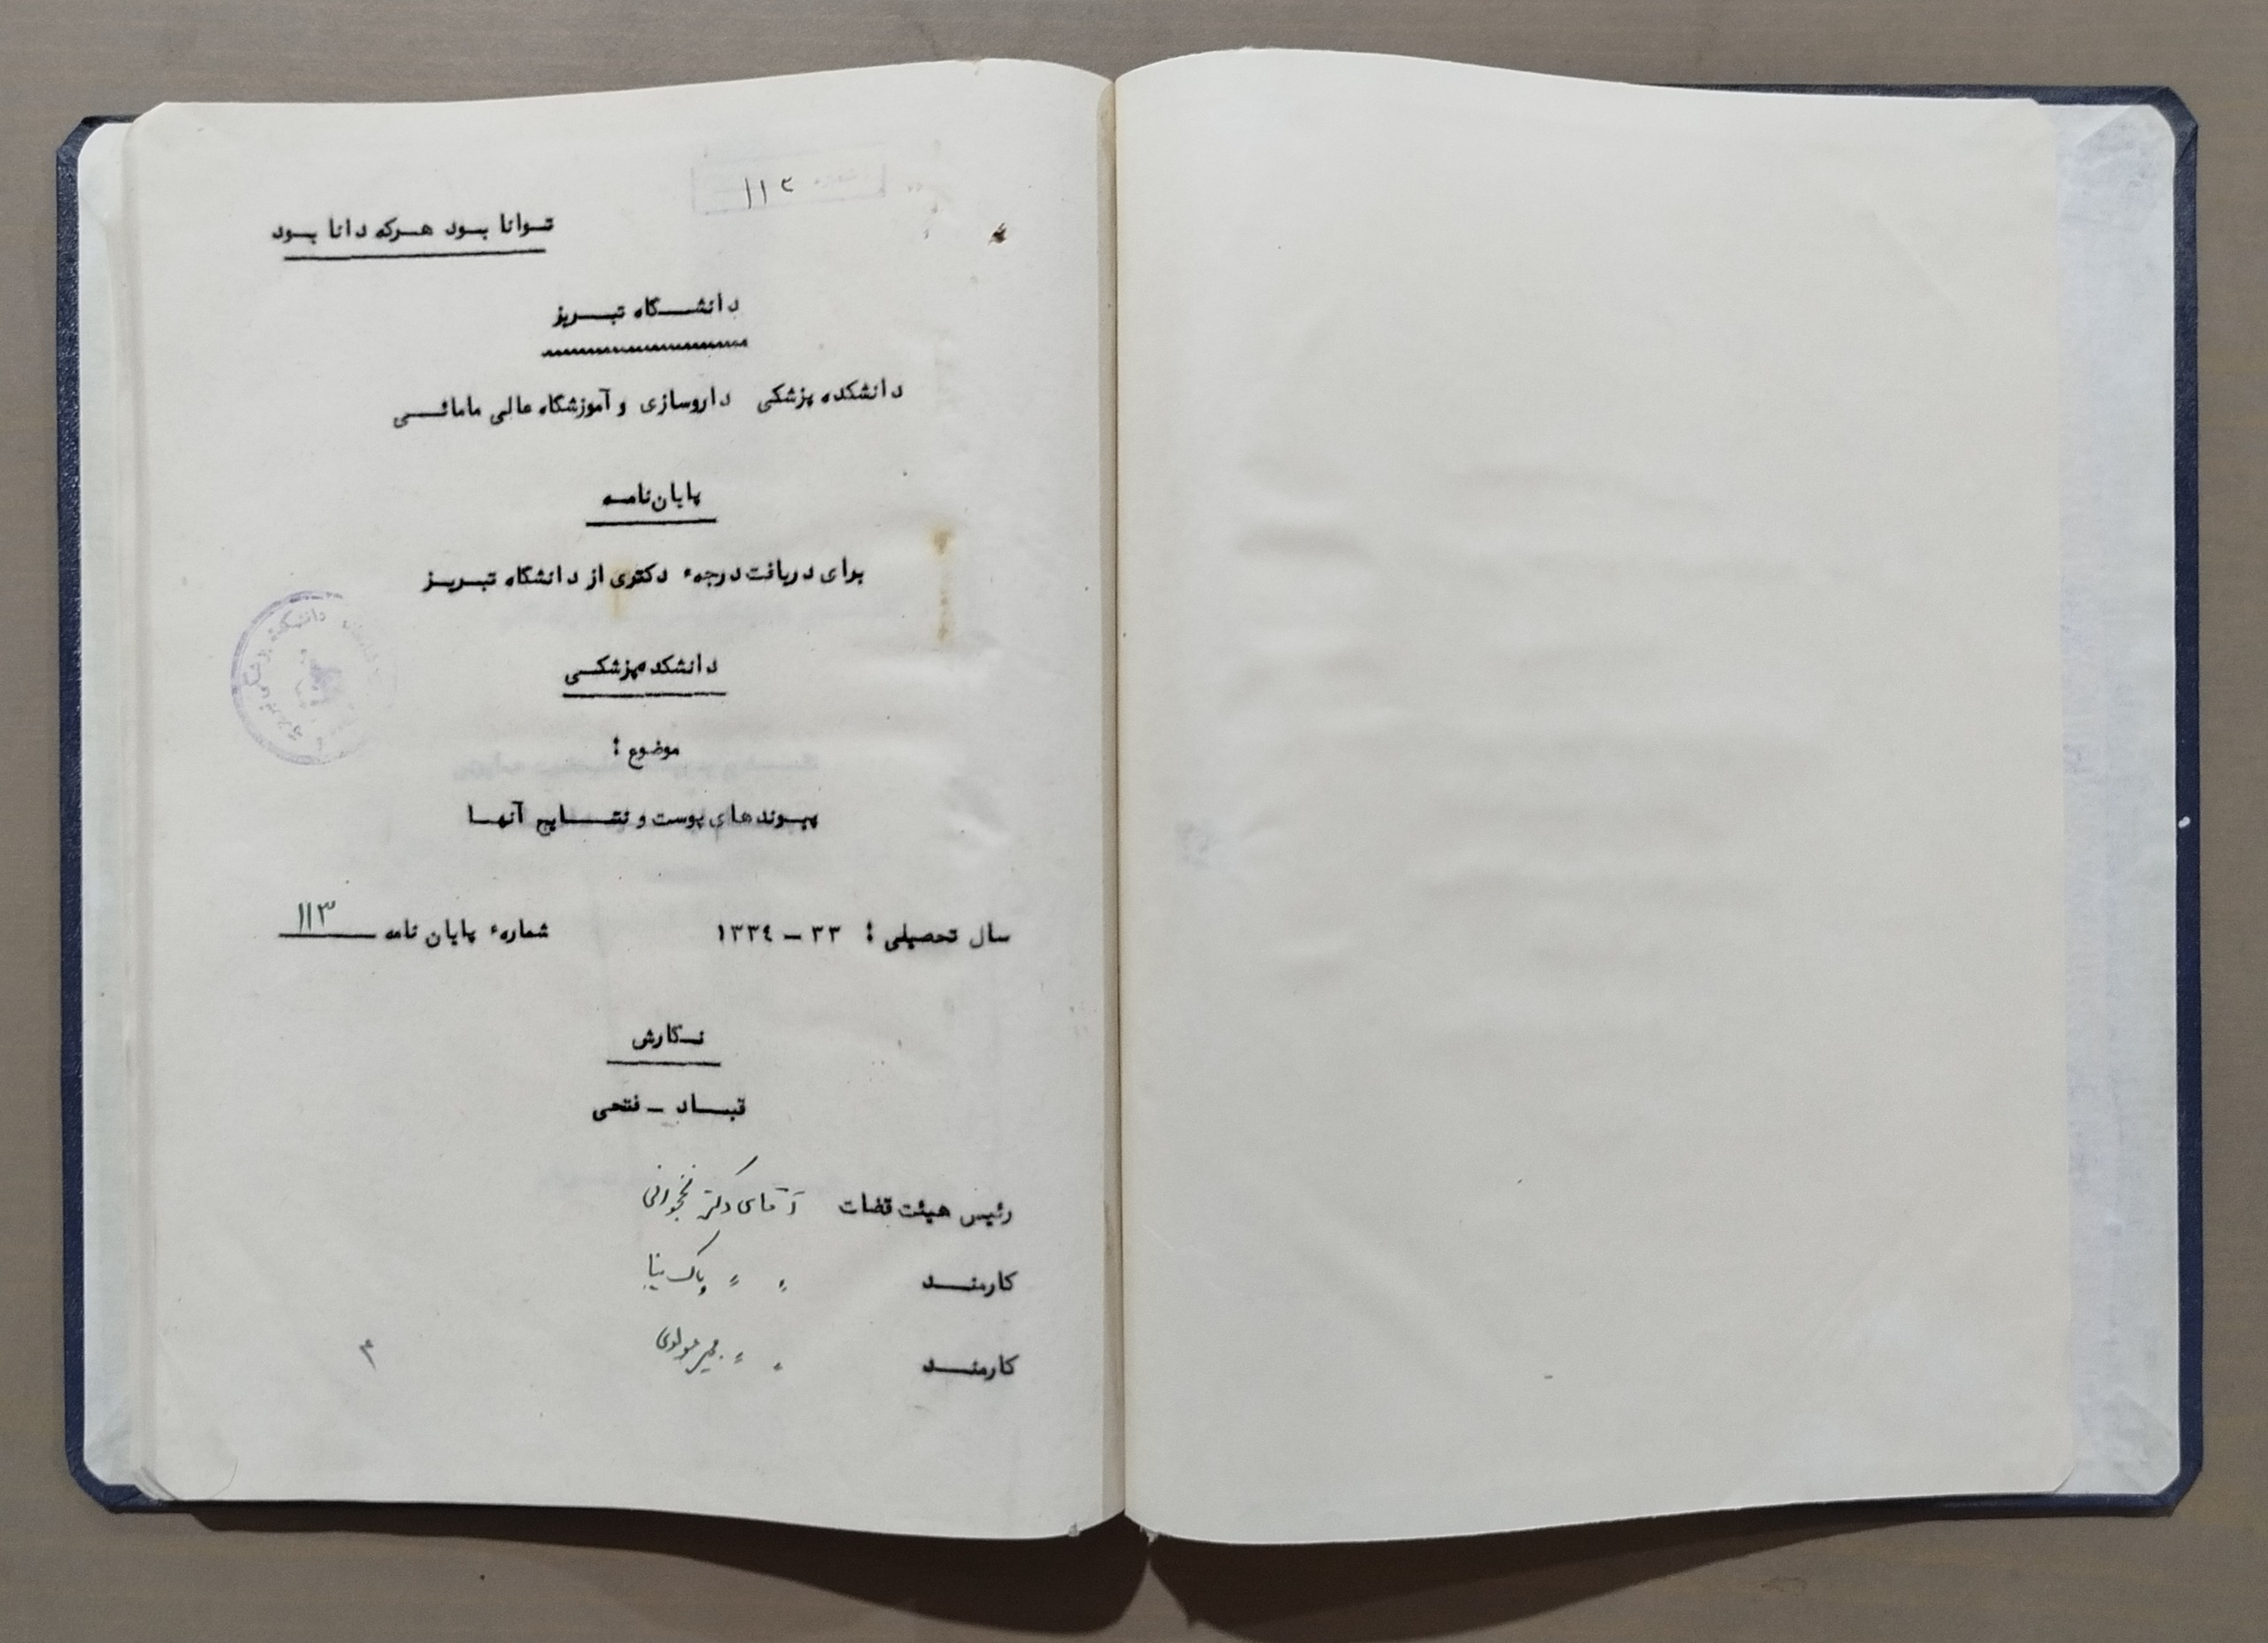 ۱۱۳
توانا بود هرکه دانا بود
دانشگاه تبریز
دانشکده پزشکی داروسازی و آموزشگاه عالی مامائی
پایان نامه
برای دریافت درجهٔ دکتری از دانشگاه تبریز
دانشکده پزشکی
موضوع :
پیوندهای پوست و نتایج آنها
سال تحصیلی : ۳۳ - ۱۳۳۴ شمارهٔ پایان نامه ۱۱۳
نگارش
قباد - فتحی
رئیس هیئت قضات آقای دکتر نخجوانی
کارمند " " پاک نیا
کارمند " " میر مولوی
دانشکده پزشکی تبریز